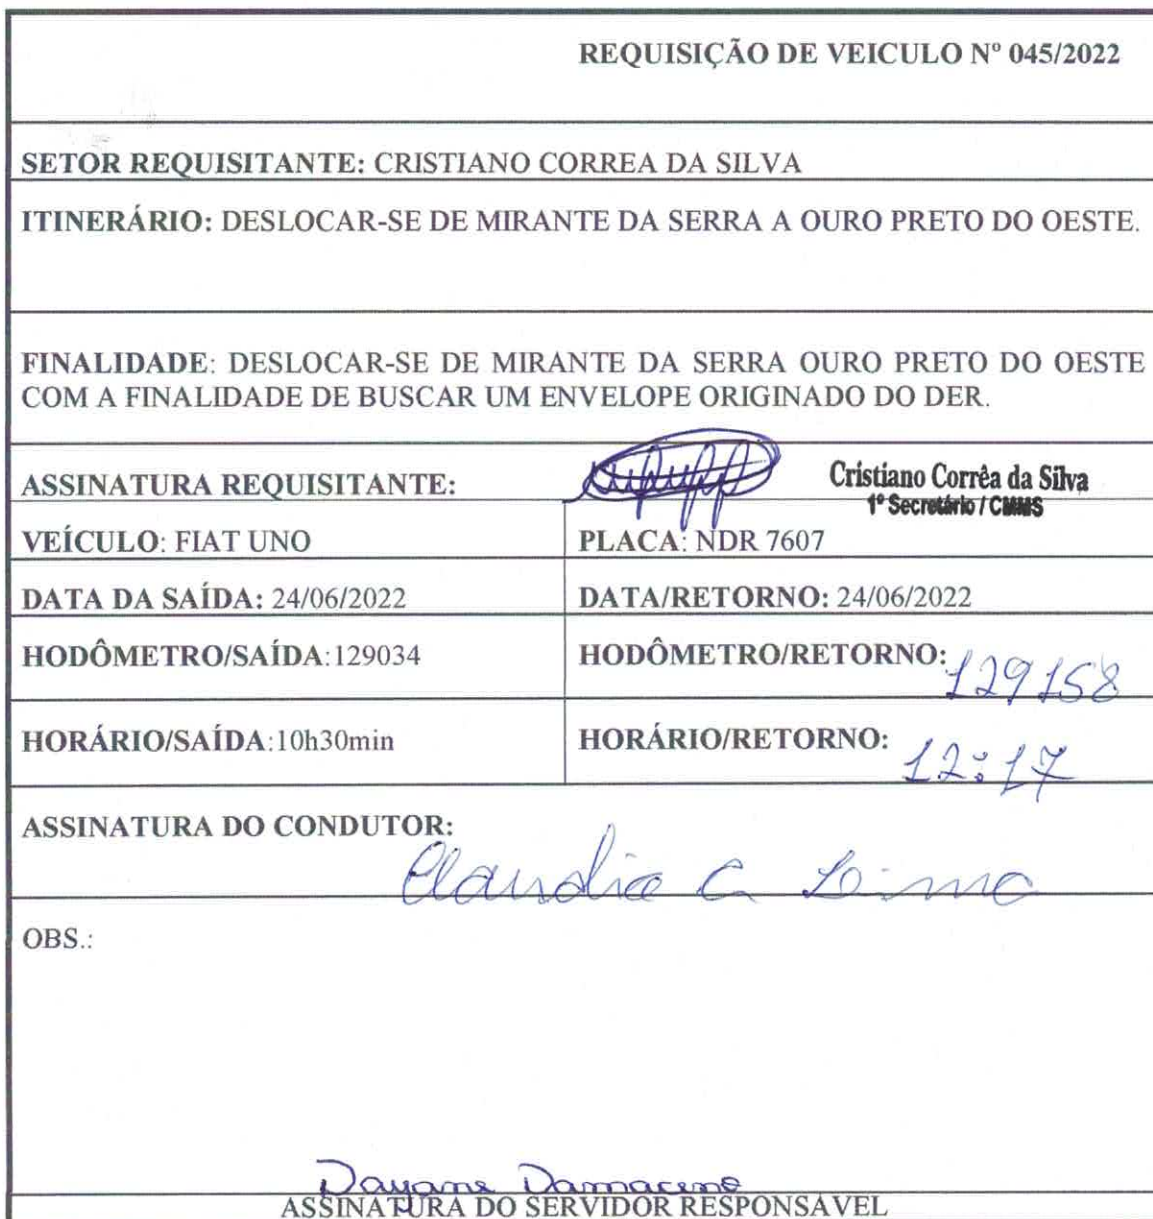 REQUISIÇÃO DE VEICULO Nº 045/2022
SETOR REQUISITANTE: CRISTIANO CORREA DA SILVA
ITINERÁRIO: DESLOCAR-SE DE MIRANTE DA SERRA A OURO PRETO DO OESTE.
FINALIDADE: DESLOCAR-SE DE MIRANTE DA SERRA OURO PRETO DO OESTE
COM A FINALIDADE DE BUSCAR UM ENVELOPE ORIGINADO DO DER.
ASSINATURA REQUISITANTE: Cristiano Corrêa da Silva
1º Secretário / CMMS
VEÍCULO: FIAT UNO PLACA: NDR 7607
DATA DA SAÍDA: 24/06/2022 DATA/RETORNO: 24/06/2022
HODÔMETRO/SAÍDA:129034 HODÔMETRO/RETORNO: 129158
HORÁRIO/SAÍDA:10h30min HORÁRIO/RETORNO: 12:17
ASSINATURA DO CONDUTOR:
Claudia C Lima
OBS.:
Dayane Damaceno
ASSINATURA DO SERVIDOR RESPONSÁVEL